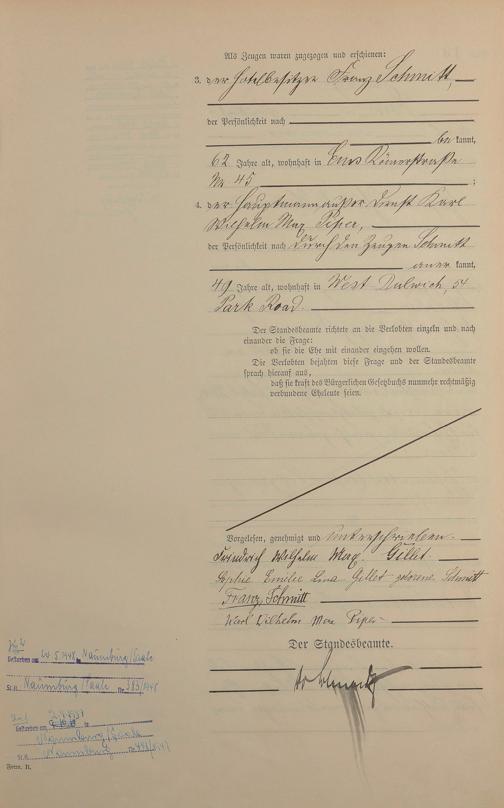 Als Zeugen waren zugezogen und erschienen:
3. der Hotelbesitzer Franz Schmitt,
der Persönlichkeit nach
be kannt,
62 Jahre alt, wohnhaft in Ems Römerstraße
Nr. 45 ;
4. der Hauptmann außer Dienst Karl
Wilhelm Max Piper,
der Persönlichkeit nach durch den Zeugen Schmitt
aner kannt,
49 Jahre alt, wohnhaft in West Dulwich, 54
Park Road.
Der Standesbeamte richtete an die Verlobten einzeln und nach
einander die Frage:
ob sie die Ehe mit einander eingehen wollen.
Die Verlobten bejahten diese Frage und der Standesbeamte
sprach hierauf aus,
daß sie kraft des Bürgerlichen Gesetzbuchs nunmehr rechtmäßig
verbundene Eheleute seien.
Vorgelesen, genehmigt und unterschrieben.
Friedrich Wilhelm Max Gillet.
Sophie Emilie Lina Gillet geborene Schmitt
Franz Schmitt
Karl Wilhelm Max Piper
Der Standesbeamte.
Gestorben am 5.1948 in Naumburg/Saale
St.A. Naumburg/Saale Nr. 385/1948
Gestorben am in
Naumburg/Saale
St.A. Naumburg
Form. B.